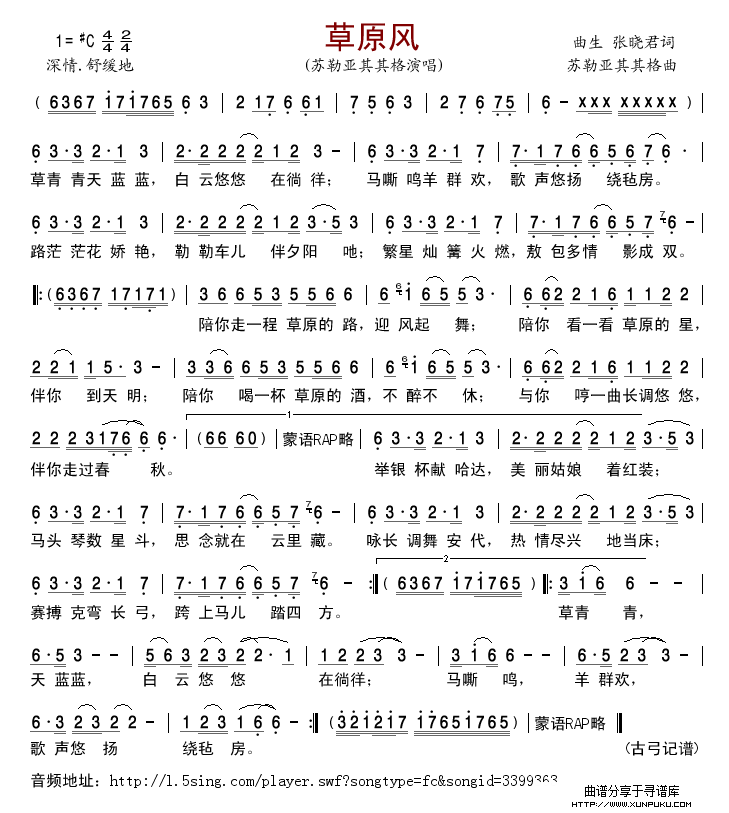 草原风
1=♯C 4/4 2/4
曲生 张晓君词
深情.舒缓地
(苏勒亚其其格演唱)
苏勒亚其其格曲
( 6367 171765 6 3 | 2 17 6 61 | 7 5 6 3 | 2 7 6 75 | 6 - xxx xxxxx )
6 3·3 2·1 3 | 2·2 2 2 2 2 1 2 3 - | 6 3·3 2·1 7 | 7·1 7 6 6 5 6 7 6 ·
草青 青天 蓝 蓝, 白 云悠悠 在徜 徉; 马嘶 鸣羊 群 欢, 歌 声悠扬 绕毡房。
6 3·3 2·1 3 | 2·2 2 2 2 2 1 2 3·5 3 | 6 3·3 2·1 7 | 7·1 7 6 6 5 7 7 6 -
路茫 茫花 娇 艳, 勒 勒车儿 伴夕阳 吔; 繁星 灿篝 火 燃, 敖 包多情 影成 双。
( 6367 17171 ) | 3 6 6 5 3 5 5 6 6 | 6 6 1 6 5 5 3· | 6 6 2 2 1 6 1 1 2 2
陪你走一程 草原的 路, 迎 风起 舞; 陪你 看一看 草原的 星,
2 2 1 1 5· 3 - | 3 3 6 6 5 3 5 5 6 6 | 6 6 1 6 5 5 3· | 6 6 2 2 1 6 1 1 2 2
伴你 到天 明; 陪你 喝一杯 草原的 酒, 不 醉不 休; 与你 哼一曲长调悠 悠,
1
2 2 2 3 1 7 6 6 6· | ( 66 60 ) | 蒙语RAP略 | 6 3·3 2·1 3 | 2·2 2 2 2 2 1 2 3·5 3
伴你走过春 秋。 举银 杯献 哈达, 美 丽姑娘 着红装;
6 3·3 2·1 7 | 7·1 7 6 6 6 5 7 7 6 - | 6 3·3 2·1 3 | 2·2 2 2 2 2 1 2 3·5 3
马头 琴数 星 斗, 思 念就在 云里 藏。 咏长 调舞 安 代, 热 情尽兴 地当床;
2
6 3·3 2·1 7 | 7·1 7 6 6 6 5 7 7 6 - :‖ ( 6367 171765 ) ‖: 3 1 6 6 -
赛搏 克弯 长 弓, 跨 上马儿 踏四 方。 草青 青,
6·5 3 - - | 5 6 3 2 3 2 2·1 | 1 2 2 3 3 - | 3 1 6 6 - - | 5·6 2 3 3 -
天 蓝蓝, 白 云 悠 悠 在徜徉; 马嘶 鸣, 羊 群欢,
6·3 2 3 2 2 - | 1 2 3 1 6 6 - :‖ ( 3 2 1 2 1 1 7 1 7 6 5 1 7 6 5 ) | 蒙语RAP略 ‖
歌 声悠 扬 绕毡 房。
(古弓记谱)
音频地址: http://l.5sing.com/player.swf?songtype=fc&songid=3399363
曲谱分享于寻谱库
HTTP://WWW.XUNPUKU.COM